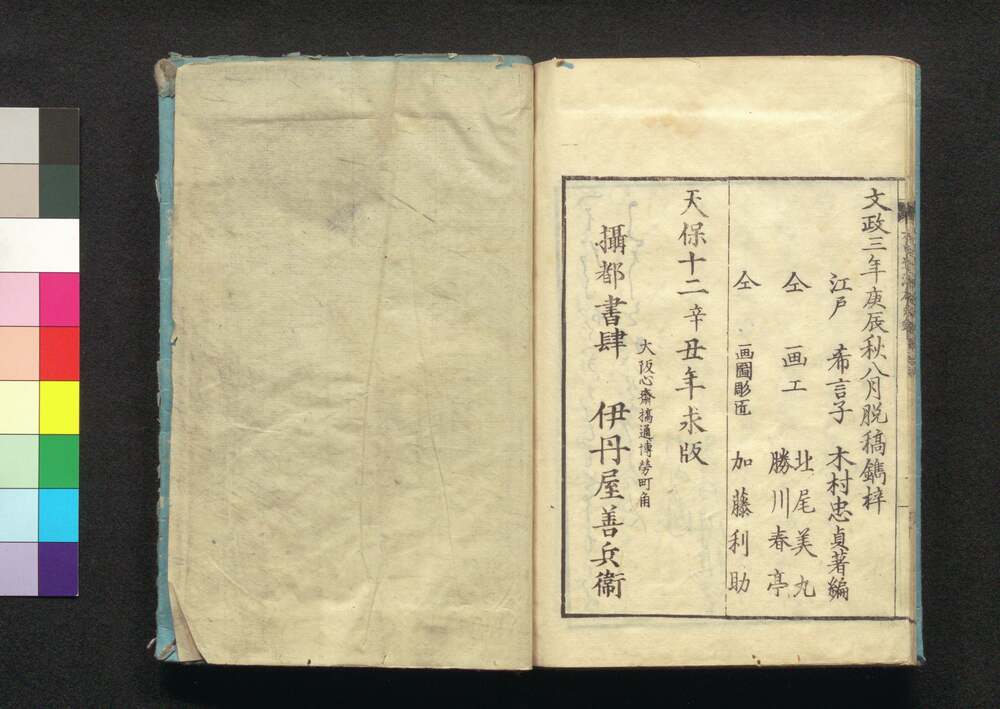 文政三年庚辰秋八月脱稿鐫梓
江戸 希言子 木村忠貞著編
仝 画工 北尾美丸
勝川春亭
仝 画圖彫匠 加藤利助
天保十二辛丑年求版
大阪心齋橋通博勞町角
攝都書肆 伊丹屋善兵衞